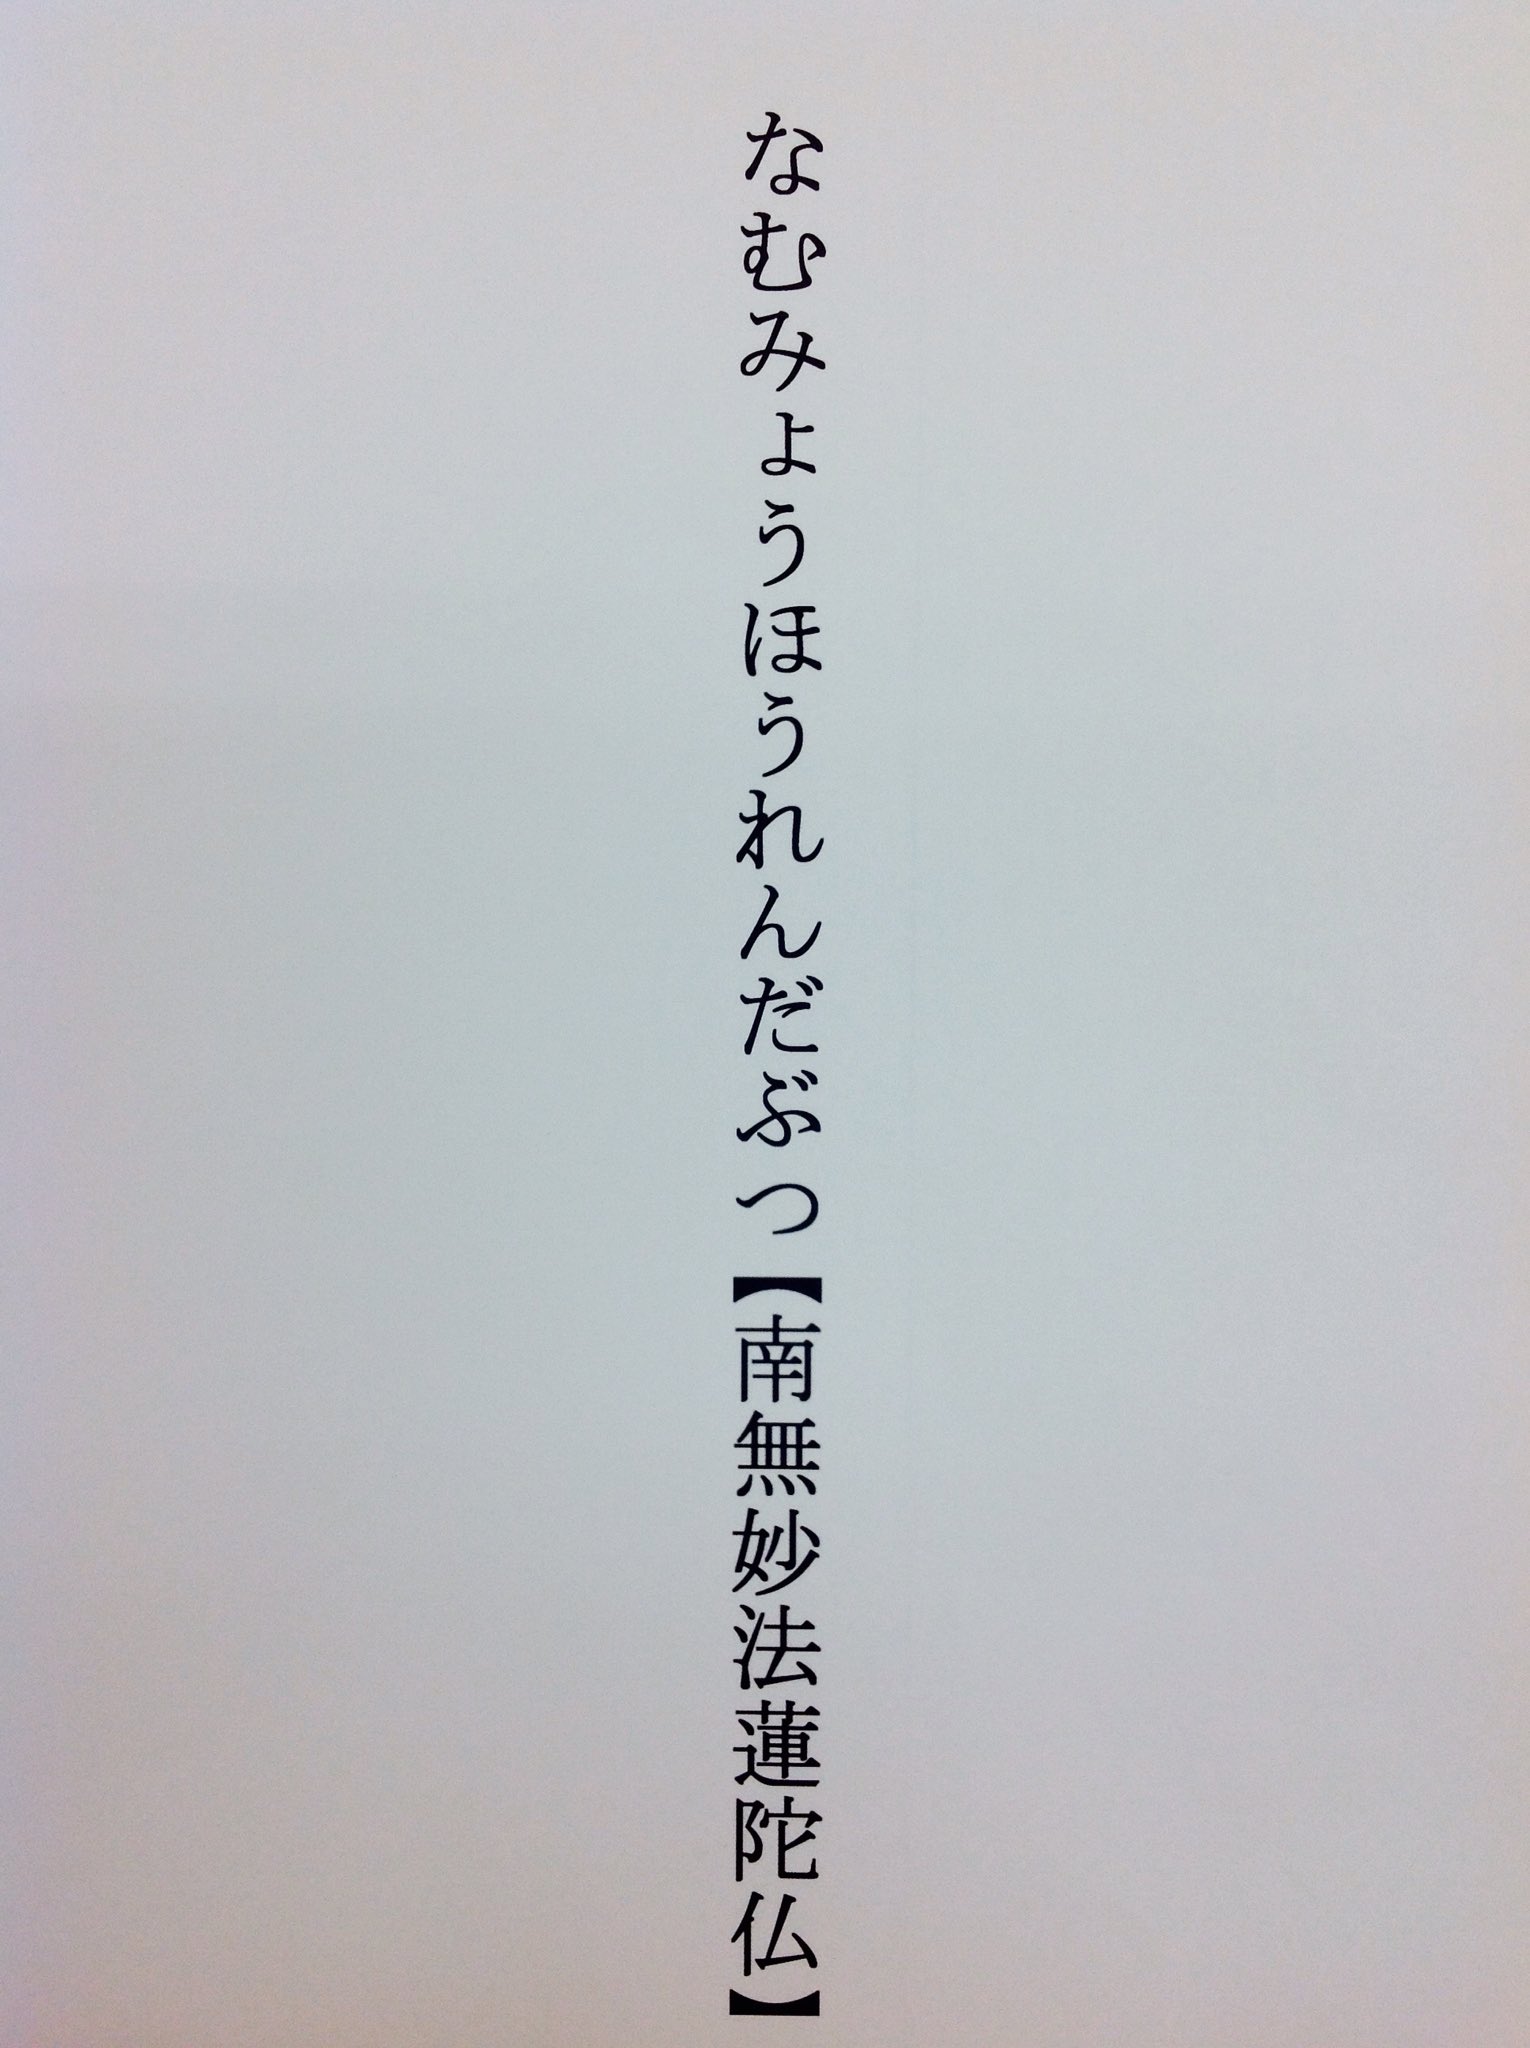 なむみょうほうれんだぶつ【南無妙法蓮陀仏】